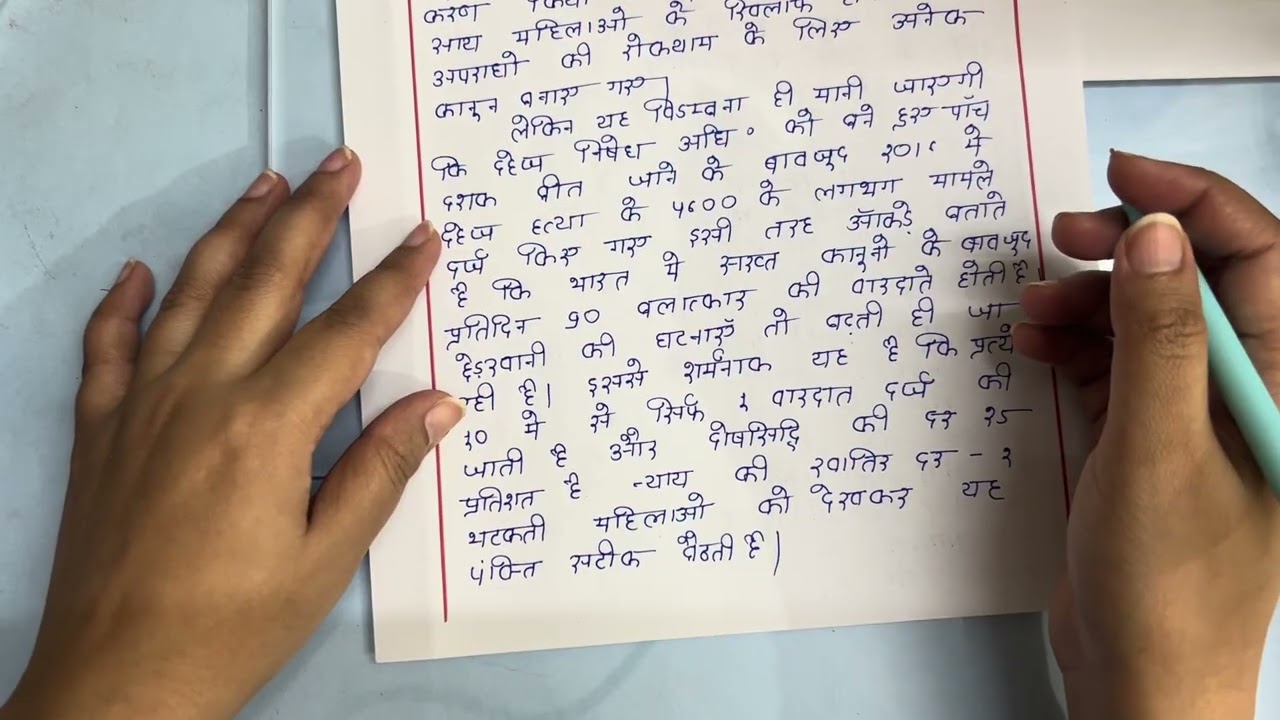 करण
साथ महिलाओ के खिलाफ
अपराधो की रोकथाम के लिए अनेक
कानून बनाए गए।
लेकिन यह विडम्बना ही मानी जाएगी
कि दहेज निषेध अधि॰ को बने हुए पाँच
दशक बीत जाने के बावजूद में
दहेज हत्या के ५६०० के लगभग मामले
दर्ज किए गए इसी तरह आँकड़े बताते
है कि भारत मे सख्त कानूनो के बावजूद
प्रतिदिन ९० बलात्कार की वारदाते होती है
छेड़खानी की घटनाएँ तो बढ़ती ही जा
रही है। इससे शर्मनाक यह है कि प्रत्ये
१० मे से सिर्फ १ वारदात दर्ज की
जाती है और दोषसिद्धि की दर २५
प्रतिशत है न्याय की खातिर दर - २
भटकती महिलाओ को देखकर यह
पंक्ति सटीक बैठती है।